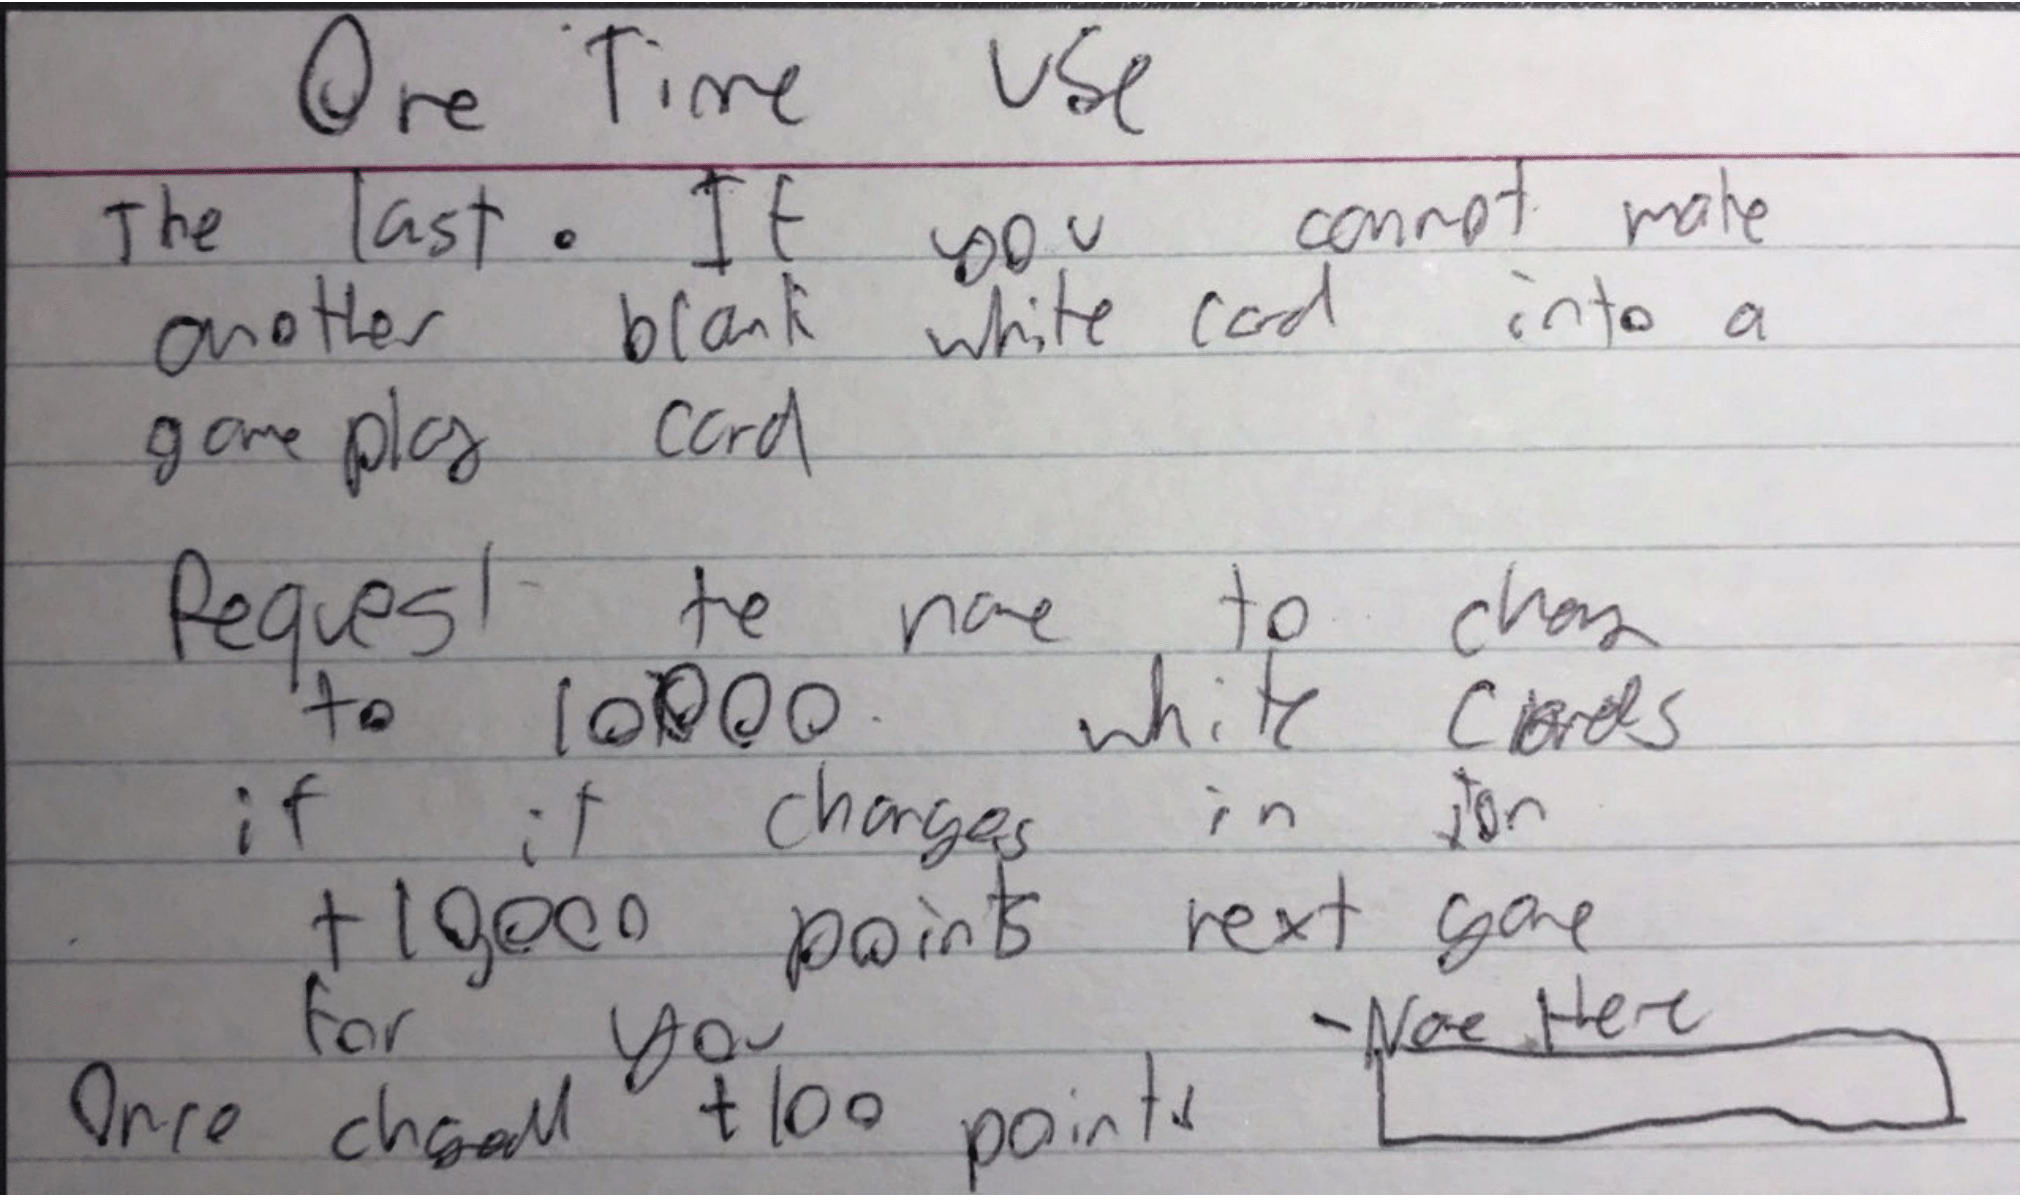 One Time Use
The last. If you cannot make
another blank white card into a
game play card
Request the name to
to 10000 white Cards
if it changes in
+10,000 points next game
for you -Name Here
Once +100 points